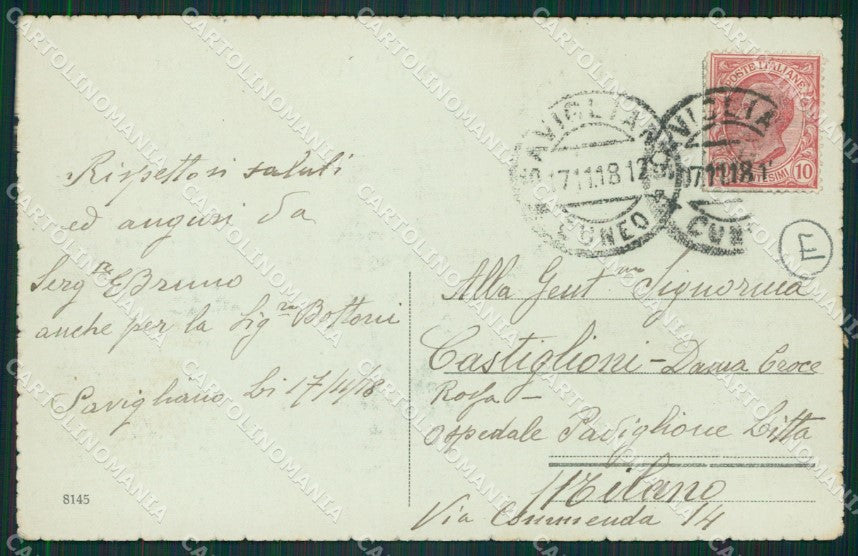 Rispettosi saluti
ed auguri da
Serg.re E Bruno
anche per la Sig.ra Bottoni
Savigliano li 17/11/18
8145
POSTE ITALIANE
CENTESIMI 10
SAVIGLIANO
17 11 18 12
CUNEO
SAVIGLIA
17 11 18 1
CUN
E
Alla Gent.ma Signorina
Castiglioni - Dama Croce
Rossa -
Ospedale Padiglione Litta
Milano
Via Commenda 14
CARTOLINOMANIA